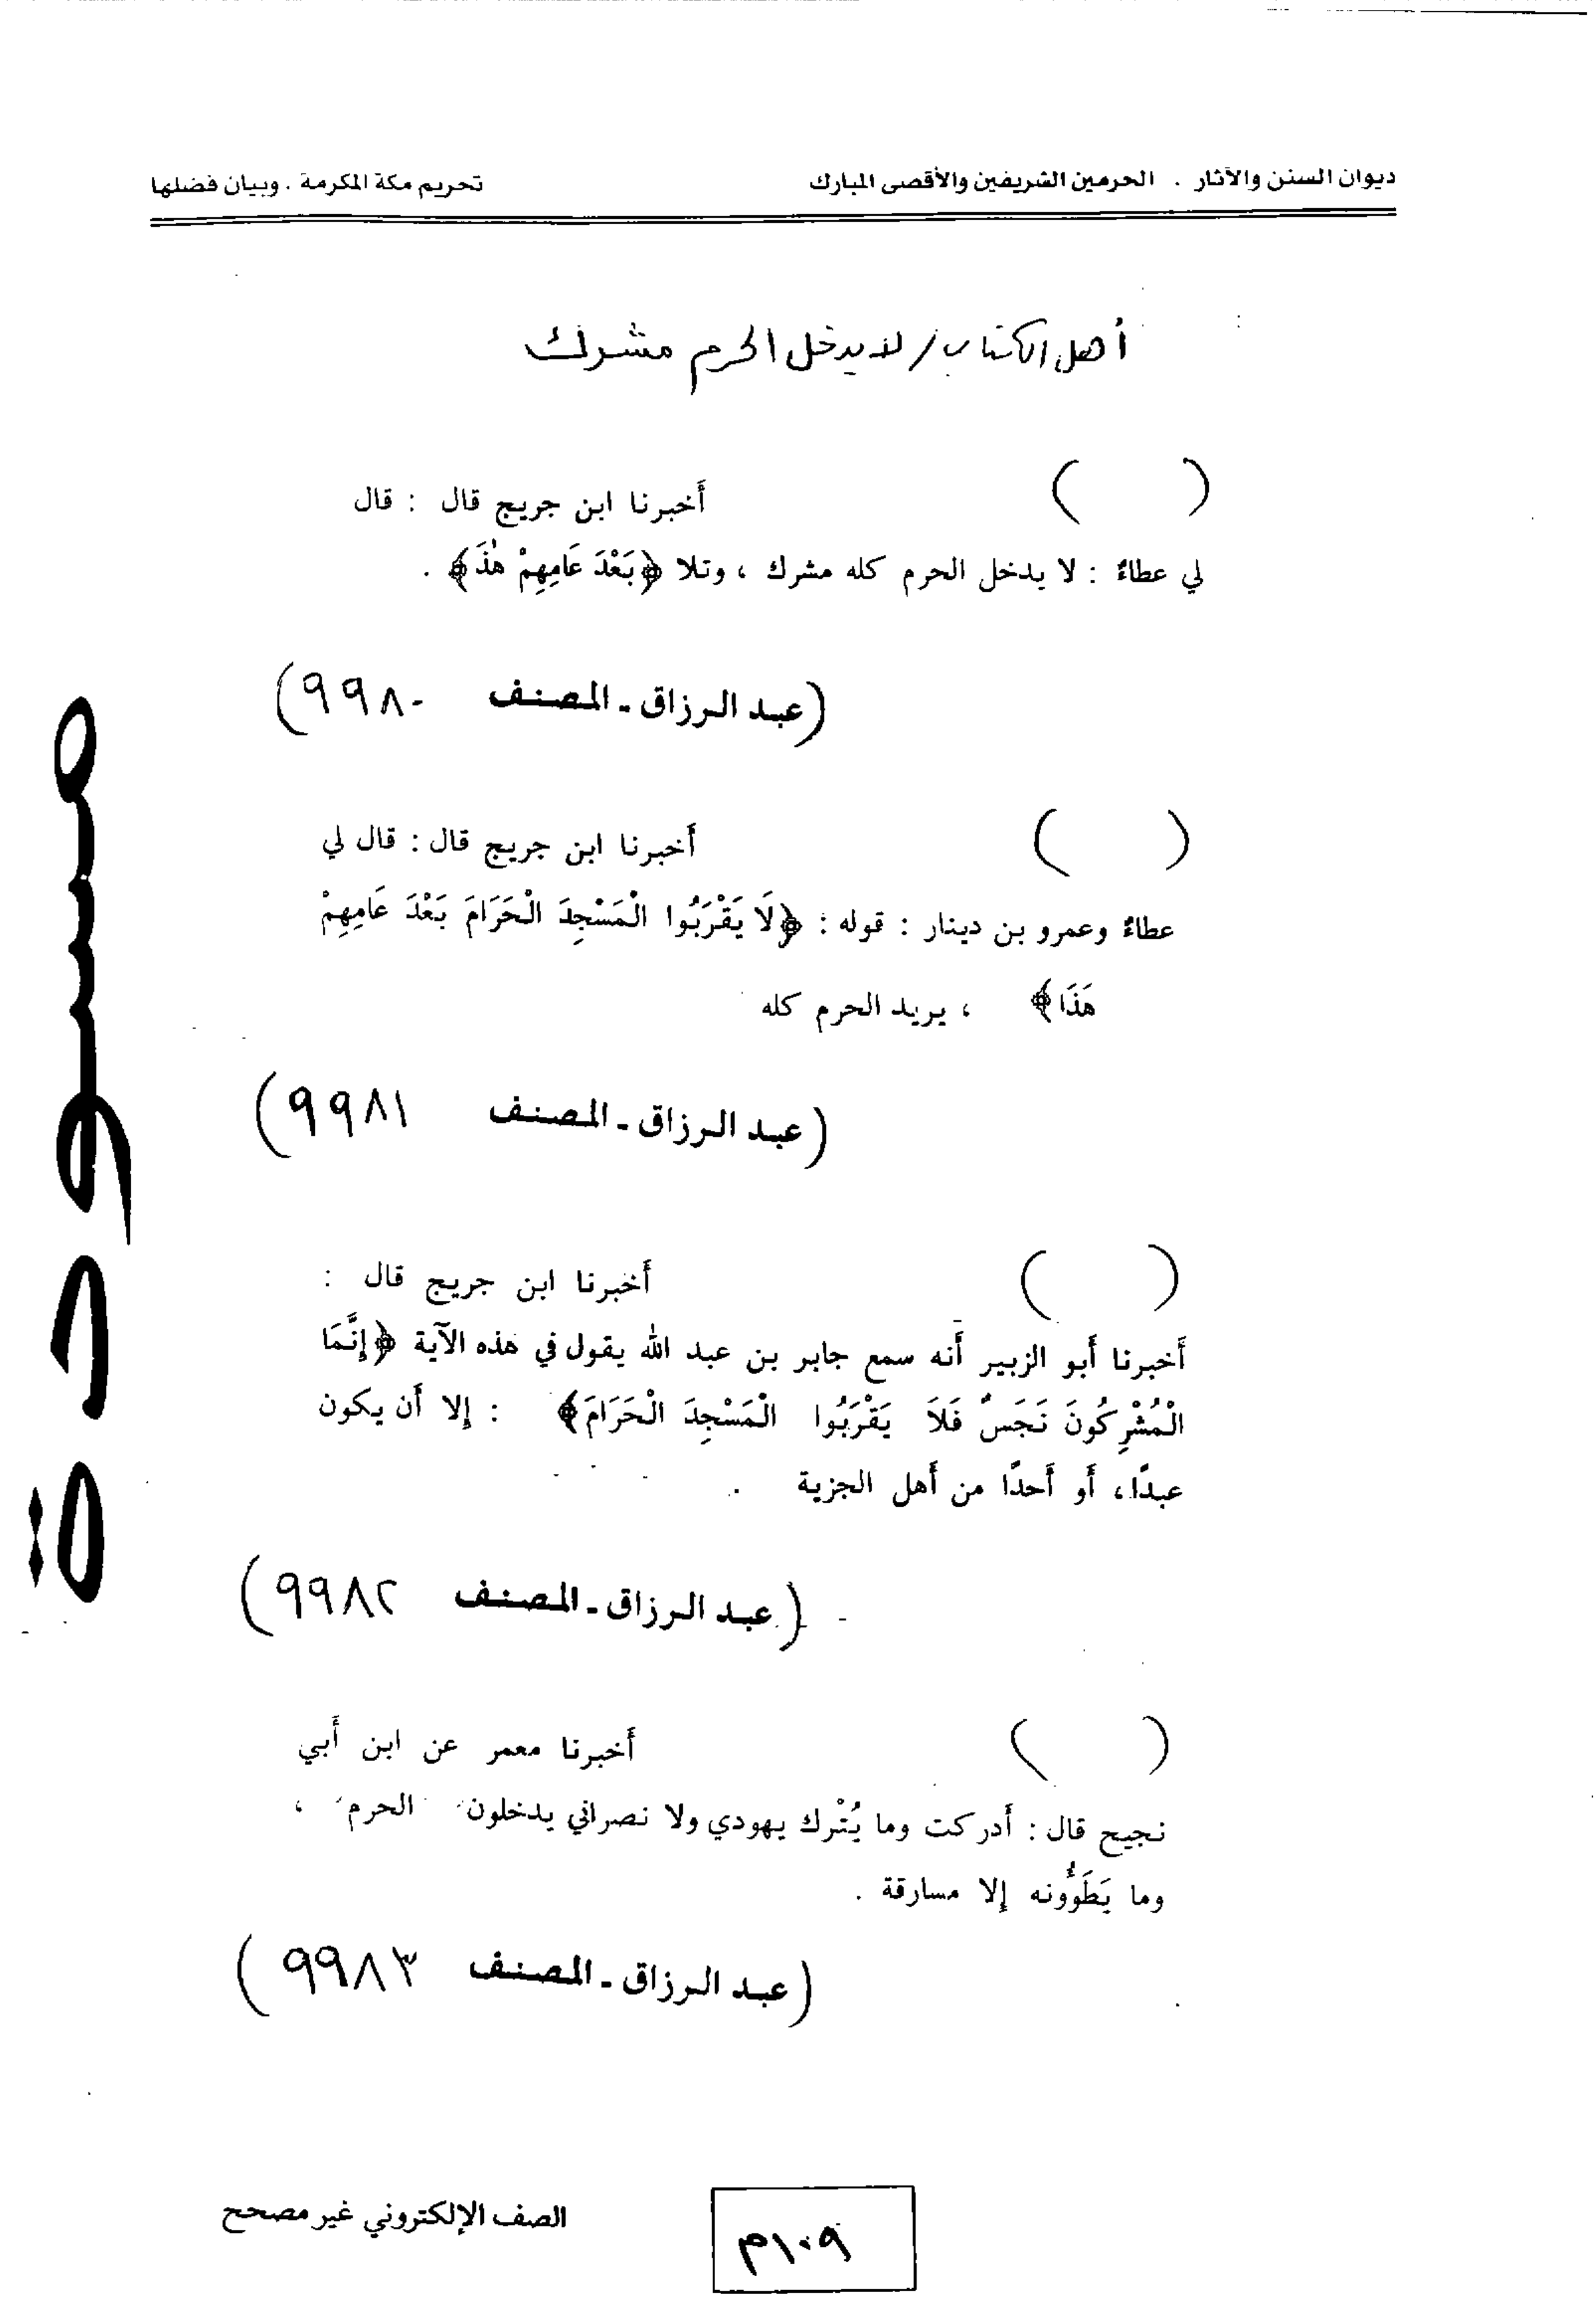 ديوان السنن والآثار . الحرمين الشريفين والأقصى المبارك تحريم مكة المكرمة . وبيان فضلها
أهل الكتاب / لا يدخل الحرم مشرك
( ) أخبرنا ابن جريج قال : قال
لي عطاءٌ : لا يدخل الحرم كله مشرك ، وتلا ﴿بَعْدَ عَامِهِمْ هٰذَ﴾ .
(عبد الرزاق ـ المصنف ٩٩٨٠)
( ) أخبرنا ابن جريج قال : قال لي
عطاءٌ وعمرو بن دينار : قوله : ﴿لَا يَقْرَبُوا الْمَسْجِدَ الْحَرَامَ بَعْدَ عَامِهِمْ
هَذَا﴾ ، يريد الحرم كله
(عبد الرزاق ـ المصنف ٩٩٨١)
( ) أخبرنا ابن جريج قال :
أخبرنا أبو الزبير أنه سمع جابر بن عبد الله يقول في هذه الآية ﴿إِنَّمَا
الْمُشْرِكُونَ نَجَسٌ فَلاَ يَقْرَبُوا الْمَسْجِدَ الْحَرَامَ﴾ : إلا أن يكون
عبدًا ، أو أحدًا من أهل الجزية .
(عبد الرزاق ـ المصنف ٩٩٨٢)
( ) أخبرنا معمر عن ابن أبي
نجيح قال : أدركت وما يُتْرك يهودي ولا نصراني يدخلون الحرم ،
وما يَطَؤُونه إلا مسارقة .
(عبد الرزاق ـ المصنف ٩٩٨٣)
مسودة
١٠٩م
الصف الإلكتروني غير مصحح